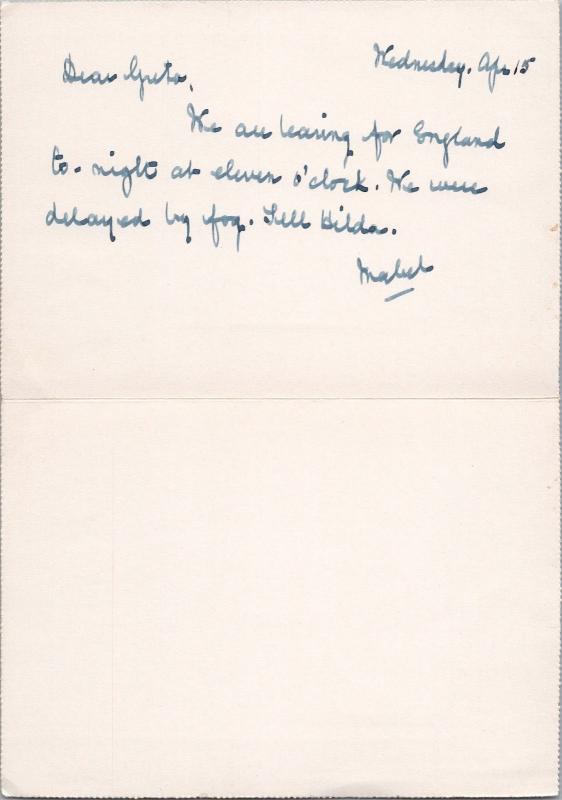 Wednesday. Apr 15
Dear Greta,
We are leaving for England
to-night at eleven o'clock. We were
delayed by fog. Tell Hilda.
Mabel